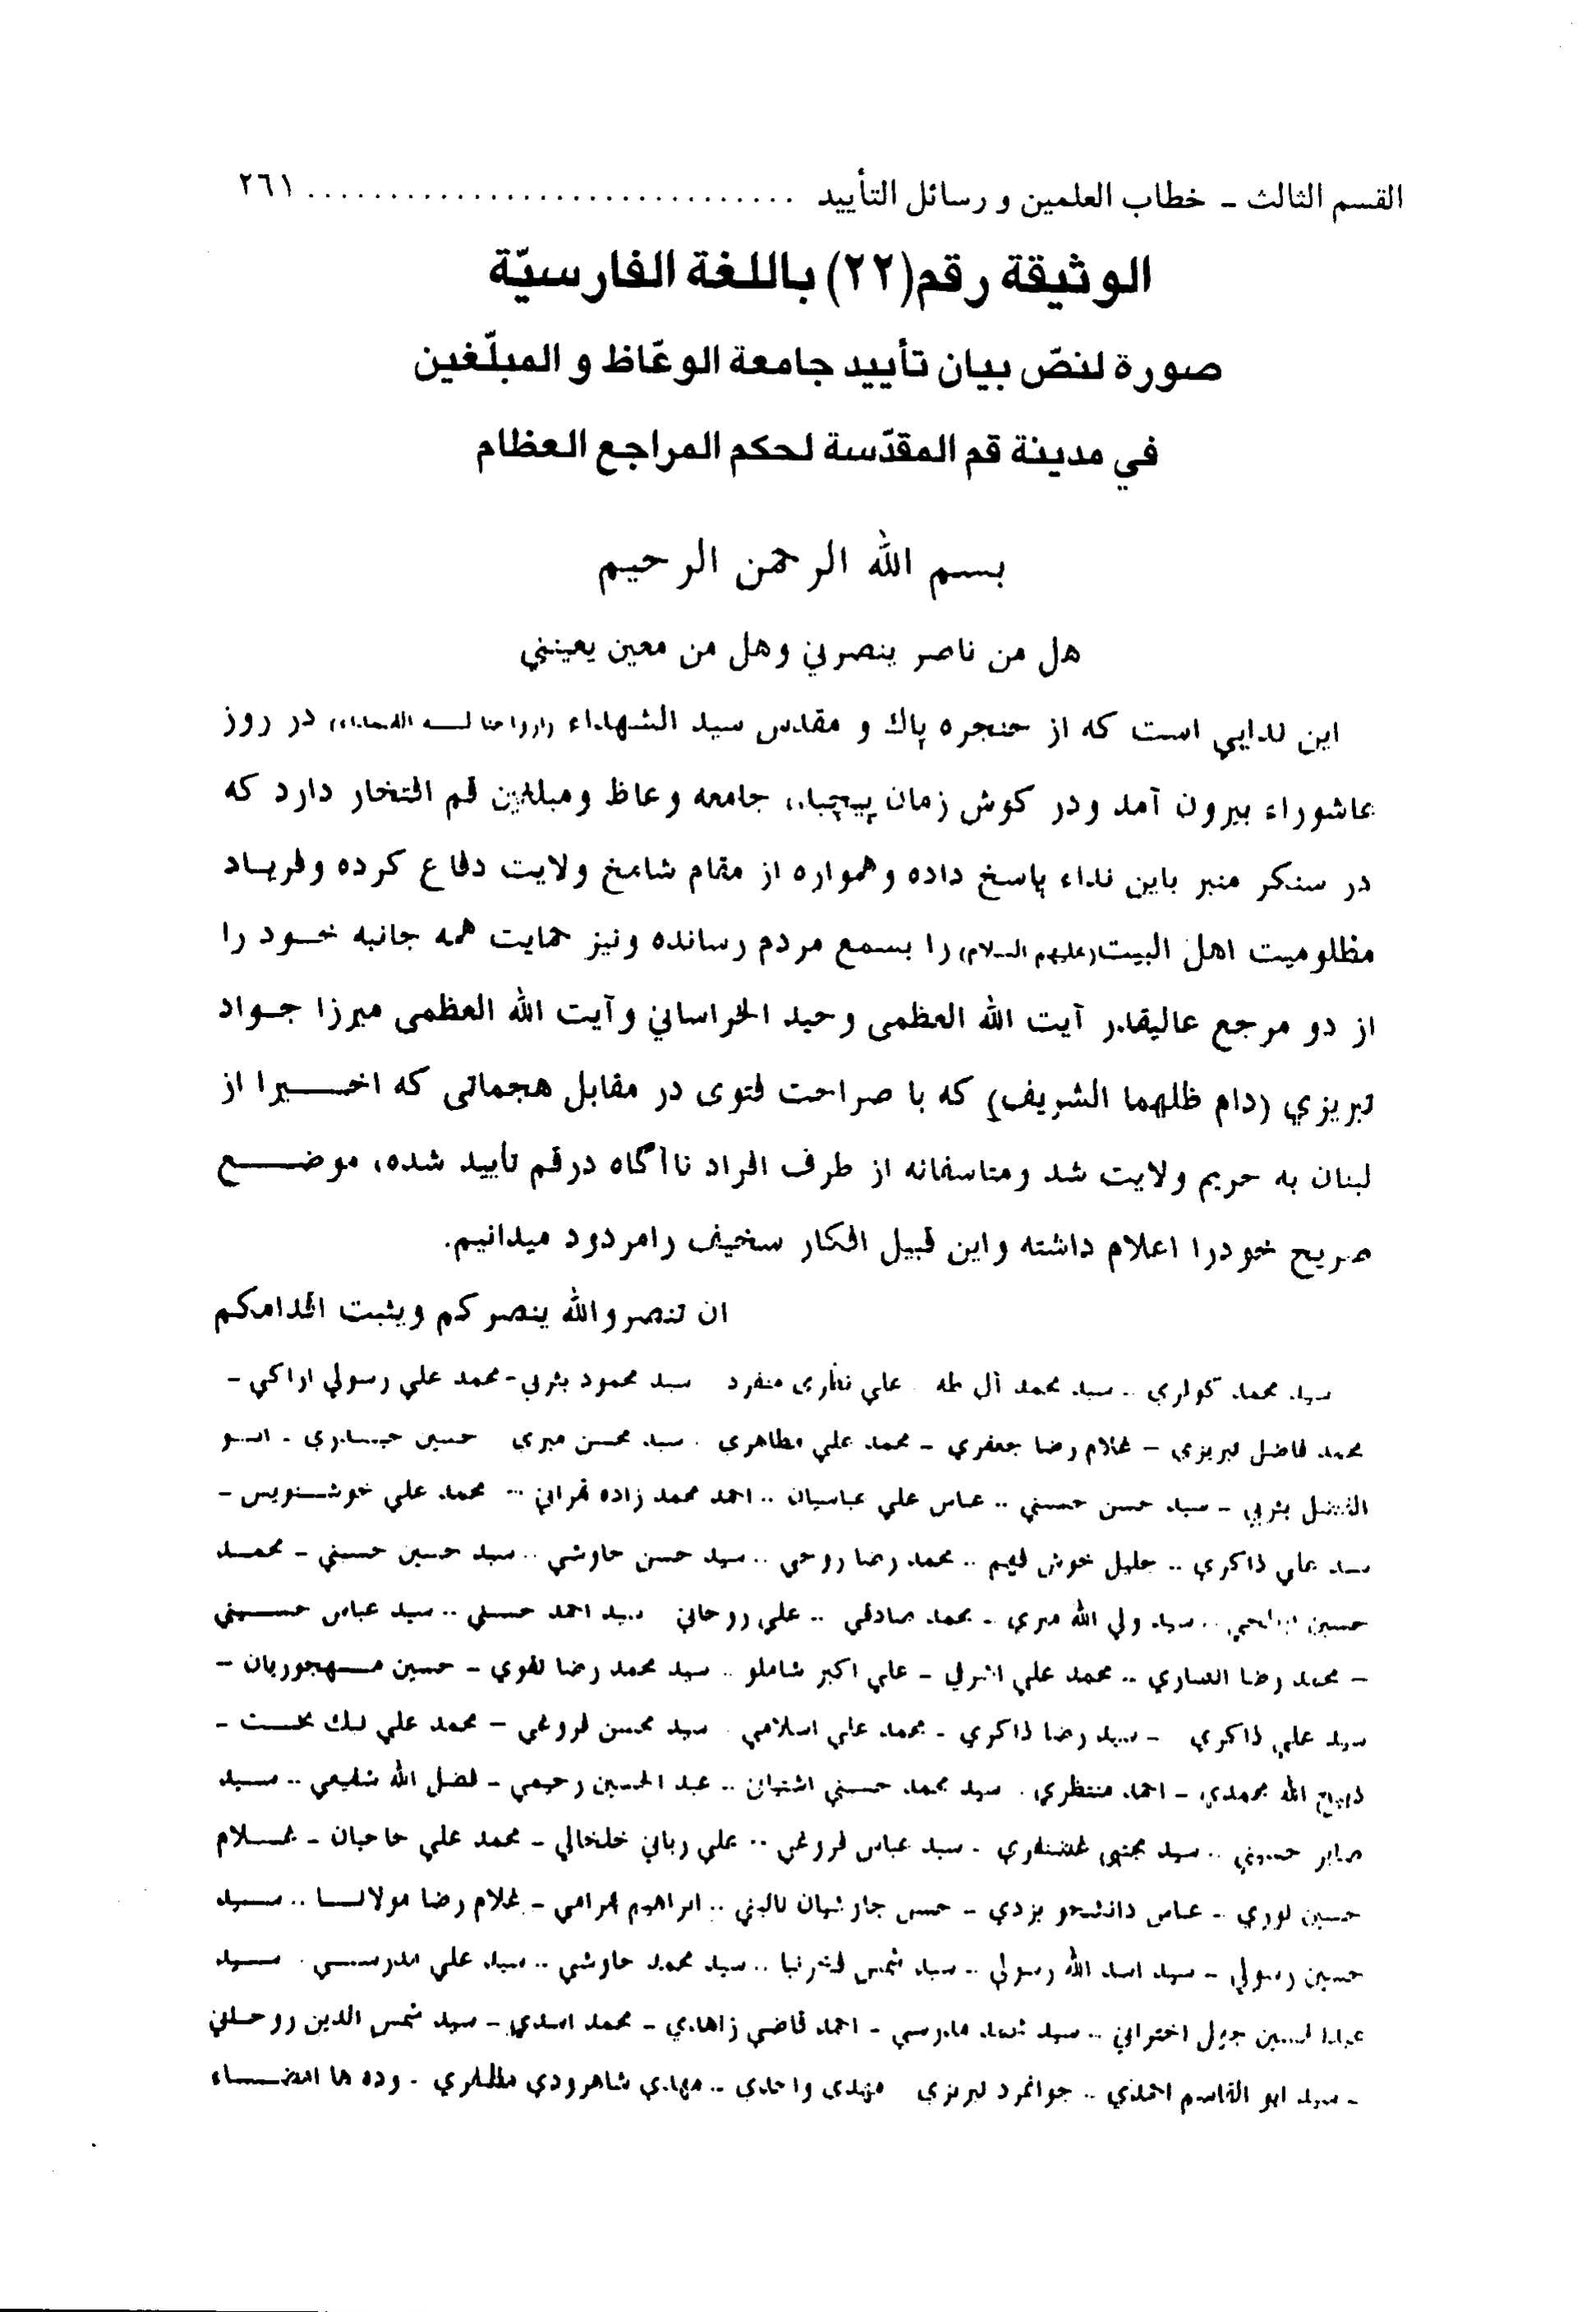 القسم الثالث - خطاب العلمين و رسائل التأييد .............................. ٢٦١
الوثيقة رقم (٢٢) باللغة الفارسيّة
صورة لنصّ بيان تأييد جامعة الوعّاظ و المبلّغين
في مدينة قم المقدّسة لحكم المراجع العظام
بسم الله الرحمن الرحيم
هل من ناصر ينصرني وهل من معين يعينني
اين ندايي است كه از حنجره پاك و مقدس سيد الشهداء (ارواحنا لـه الفـداء) در روز
عاشوراء بيرون آمد ودر كوش زمان پيچيد، جامعه وعاظ ومبلغين قم افتخار دارد كه
در سنكر منبر باين نداء پاسخ داده وهمواره از مقام شامخ ولايت دفاع كرده وفريـاد
مظلوميت اهل البيت (عليهم السلام) را بسمع مردم رسانده ونيز حمايت همه جانبه خـود را
از دو مرجع عاليقدر آيت الله العظمى وحيد الخراساني وآيت الله العظمى ميرزا جـواد
تبريزي (دام ظلهما الشريف) كه با صراحت فتوى در مقابل هجماتى كه اخـــيرا از
لبنان به حريم ولايت شد ومتاسفانه از طرف افراد ناآگاه درقم تأييد شده، موضـــع
صريح خودرا اعلام داشته واين قبيل افكار سخيف رامردود ميدانيم.
ان تنصروالله ينصركم ويثبت اقدامكم
سيد محمد كوارى .. سيد محمد آل طه علي نظارى منفرد سيد محمود يثربي - محمد علي رسولي اراكي -
محمد فاضل تبريزي - غلام رضا جعفري - محمد علي مظاهرى . سيد محسن ميرى حسين حيـدري - ابـو
الفضل يثربي - سيد حسن حسيني .. عباس علي عباسيان .. احمد محمد زاده تهراني ... محمد علي خوشـنويس -
سيد علي ذاكري .. جليل خوش فهم .. محمد رضا روحى .. سيد حسن حاوشي .. سيد حسين حسيني - محمـد
حسين .. سيد ولي الله ميرى .. محمد صادقي .. علي روحاني سيد احمد حسيني .. سيد عباس حسـيني
- محمد رضا انصاري .. محمد علي اشرفي - علي اكبر شاملو .. سيد محمد رضا تقوي - حسين مـهجوريان -
سيد علي ذاكري - سيد رضا ذاكري - محمد علي اسلامي . سيد محسن فروغي - محمد علي نيك بخـت -
ذبيح الله محمدي - احمد منتظري . سيد محمد حسيني اشتياني .. عبد الحسين رحيمي - فضل الله شفيعي .. سـيد
صابر حسيني .. سيد مجتبى غضنفري . سيد عباس فروغي .. علي رباني خلخالي - محمد علي حاجيان - غـلام
حسين نوري .. عباس دانشجو يزدي - حسن نائيني .. ابراهيم بهرامي - غلام رضا مولانـا .. سـيد
حسين رسولي - سيد اسد الله رسولي .. سيد شمس .. سيد محمد حاوشي .. سيد علي مدرسـي . سـيد
اختراني .. سيد مدرسي - احمد قاضي زاهدي - محمد اسدي - سيد شمس الدين روحـاني
- سيد ابو القاسم احمدي .. جوانمرد تبريزى مهدى واحدي .. مهدي شاهرودي مظفري . وده ها امضـــاء